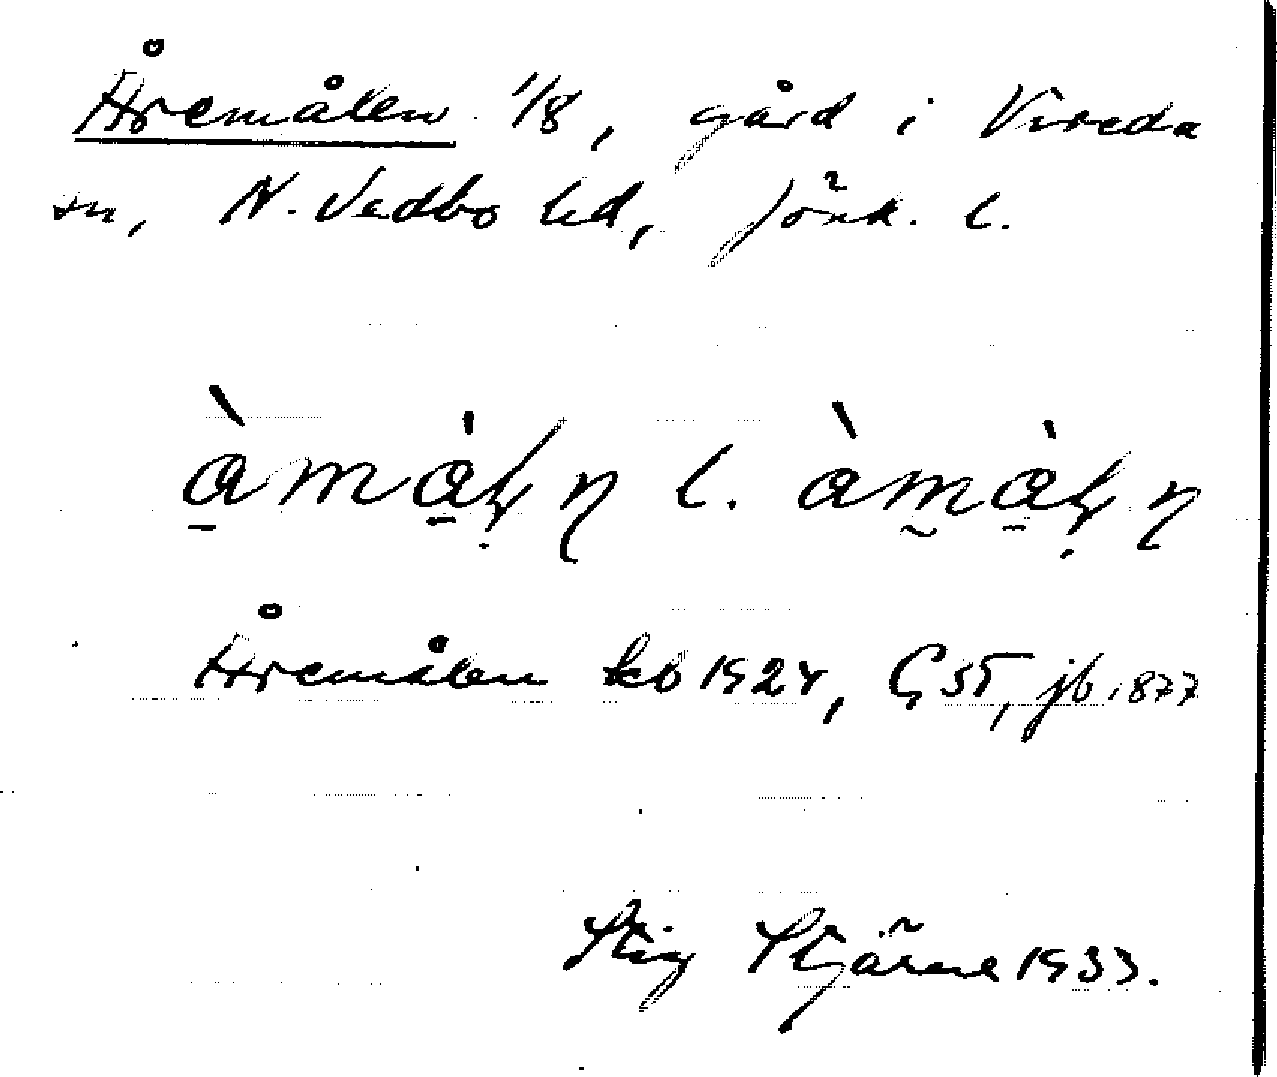 Åremålen 1/8, gård i Vireda
sn, N. Vedbo hd, Jönk. l.
l.
Åremålen kb 1924, G 35, jb 1877
Stig Stjärne 1933.